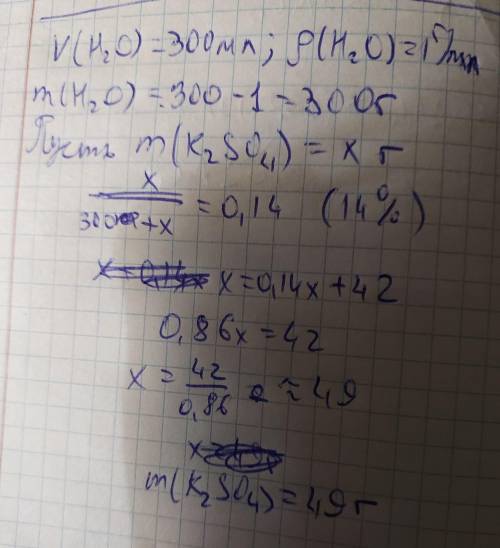 V(H₂O)=300мл; ρ(H₂O)=1г/мл
m(H₂O)=300·1=300г
Пусть m(K₂SO₄)=x г
x/(300+x)=0,14 (14%)
x=0,14x+42
0,86x=42
x=42/0,86≈49
m(K₂SO₄)=49г